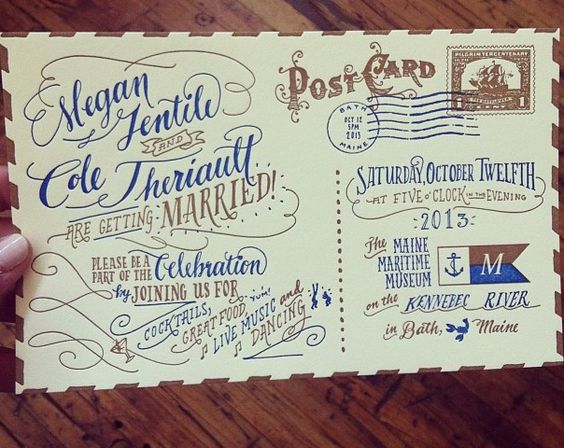 Megan
Gentile
AND
Cole Theriault
ARE GETTING MARRIED!
PLEASE BE A
PART OF THE Celebration
by JOINING US FOR
COCKTAILS,
GREAT FOOD, YUM!
LIVE MUSIC and
DANCING
POST CARD
PILGRIM TERCENTENARY
1
BATH
OCT 12
5PM
2013
MAINE
SATURDAY, OCTOBER TWELFTH
AT FIVE O'CLOCK IN THE EVENING
2013
The MAINE
MARITIME
MUSEUM
M
on the KENNEBEC RIVER
in Bath, Maine